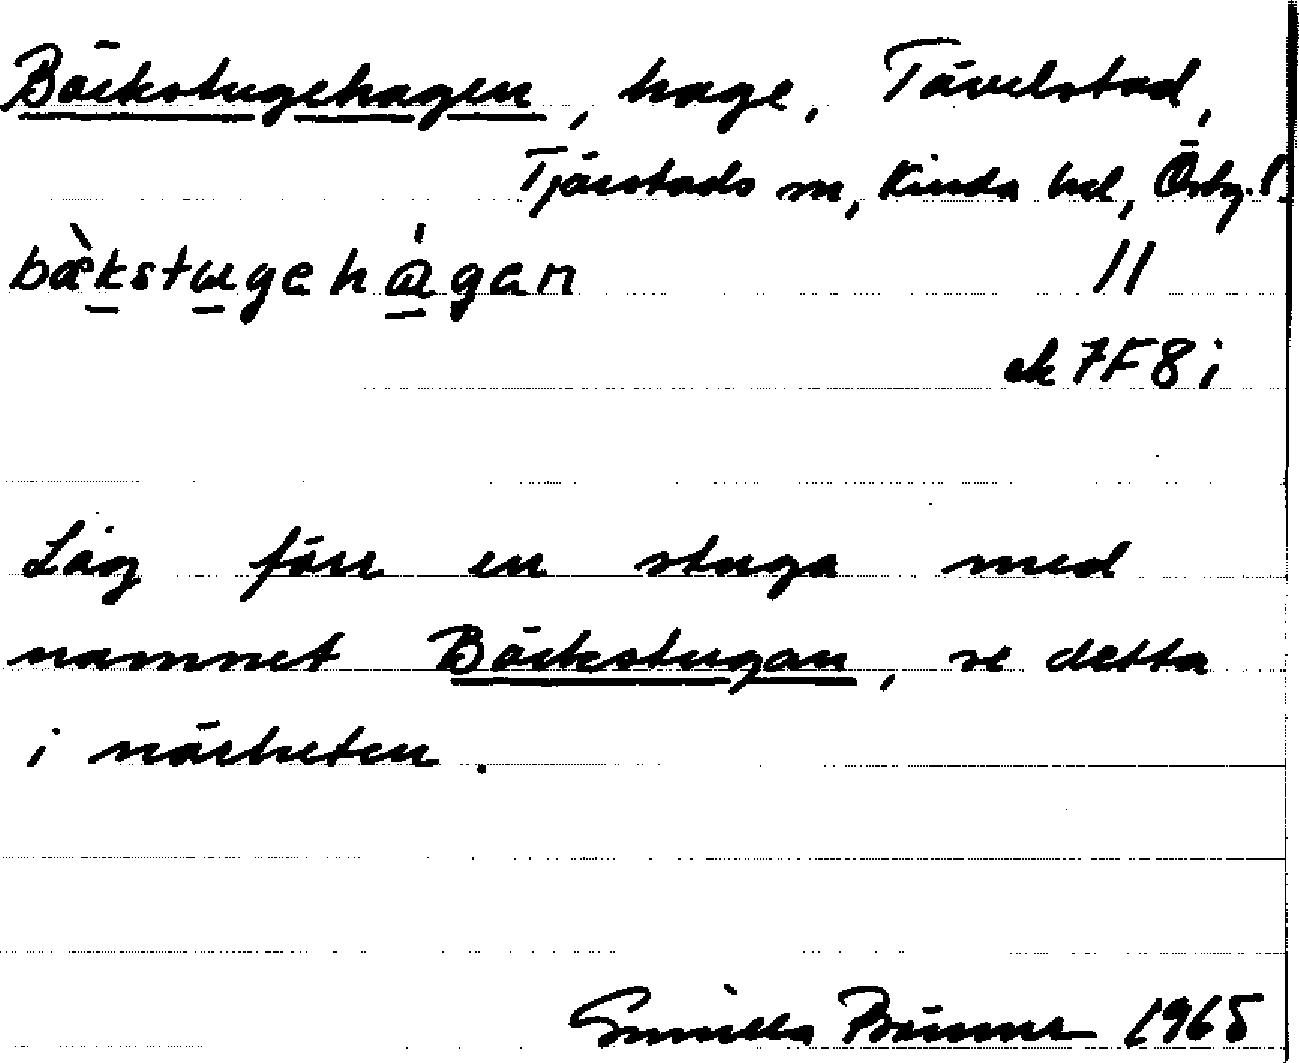 Bäckstugehagen, hage, Tävelstad,
Tjärstads sn, Kinda hd, Östg.!
bæ̀kstugehágan 11
ek 7F8i
Låg förr en stuga med
namnet Bäckstugan, se detta
i närheten.
Gunilla 1965